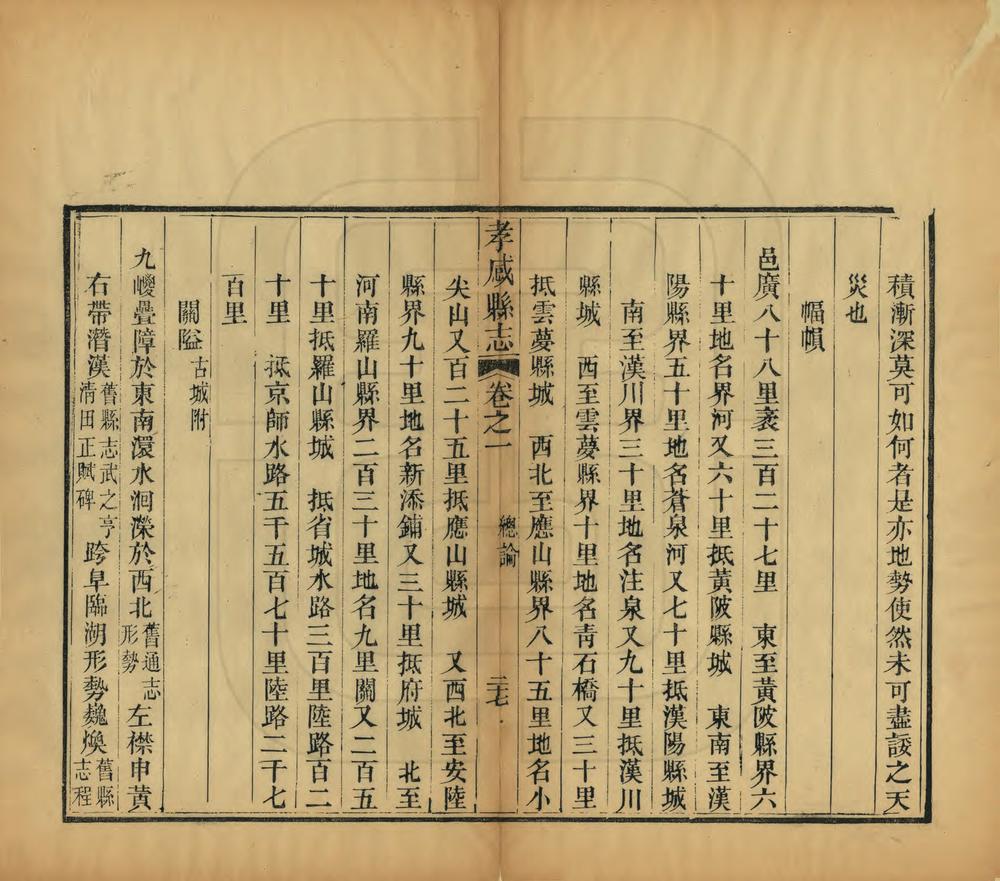 積漸深莫可如何者是亦地勢使然未可盡諉之天
災也
幅幀
邑廣八十八里袤三百二十七里　東至黃陂縣界六
十里地名界河又六十里抵黃陂縣城　東南至漢
陽縣界五十里地名蒼泉河又七十里抵漢陽縣城
南至漢川界三十里地名注泉又九十里抵漢川
縣城　西至雲夢縣界十里地名靑石橋又三十里
抵雲夢縣城　西北至應山縣界八十五里地名小
孝感縣志　卷之一　總論　二七
尖山又百二十五里抵應山縣城　又西北至安陸
縣界九十里地名新添鋪又三十里抵府城　北至
河南羅山縣界二百三十里地名九里關又二百五
十里抵羅山縣城　抵省城水路三百里陸路百二
十里　抵京師水路五千五百七十里陸路二千七
百里
關隘 古城附
九嵕疊障於東南澴水洄濚於西北 舊通志形勢 左襟申黃
右帶潛漢 舊縣志武之亨淸田正賦碑 跨阜臨湖形勢巍煥 舊縣志程